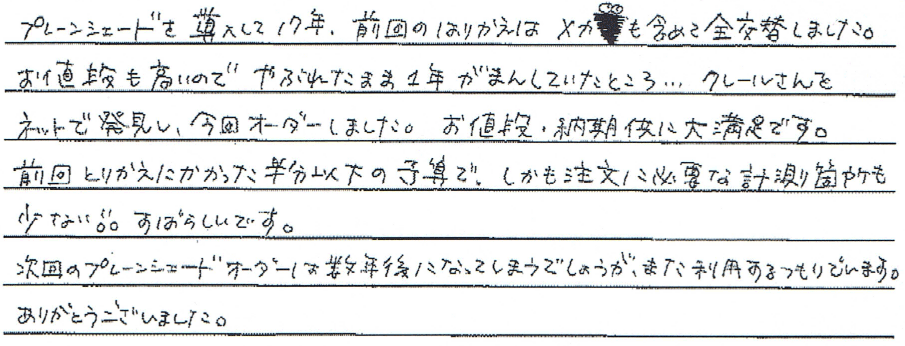 プレーンシェードを導入して17年、前回のはりかえは メカも含めて全交替しました。
お値段も高いので やぶれたまま1年がまんしていたところ… クレールさんを
ネットで発見し、今回オーダーしました。 お値段・納期供に大満足です。
前回とりかえにかかった半分以下の予算で、しかも注文に必要な計測箇所も
少ない!!。。すばらしいです。
次回のプレーンシェードオーダーは数年後になってしまうでしょうが、また利用するつもりでいます。
ありがとうございました。